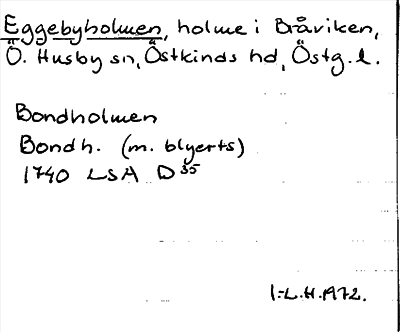 Eggebyholmen, holme i Bråviken,
Ö. Husby sn, Östkinds hd, Östg. l.
Bondholmen
Bondh. (m. blyerts)
1740 LSA D 35
I-L.H. 1972.